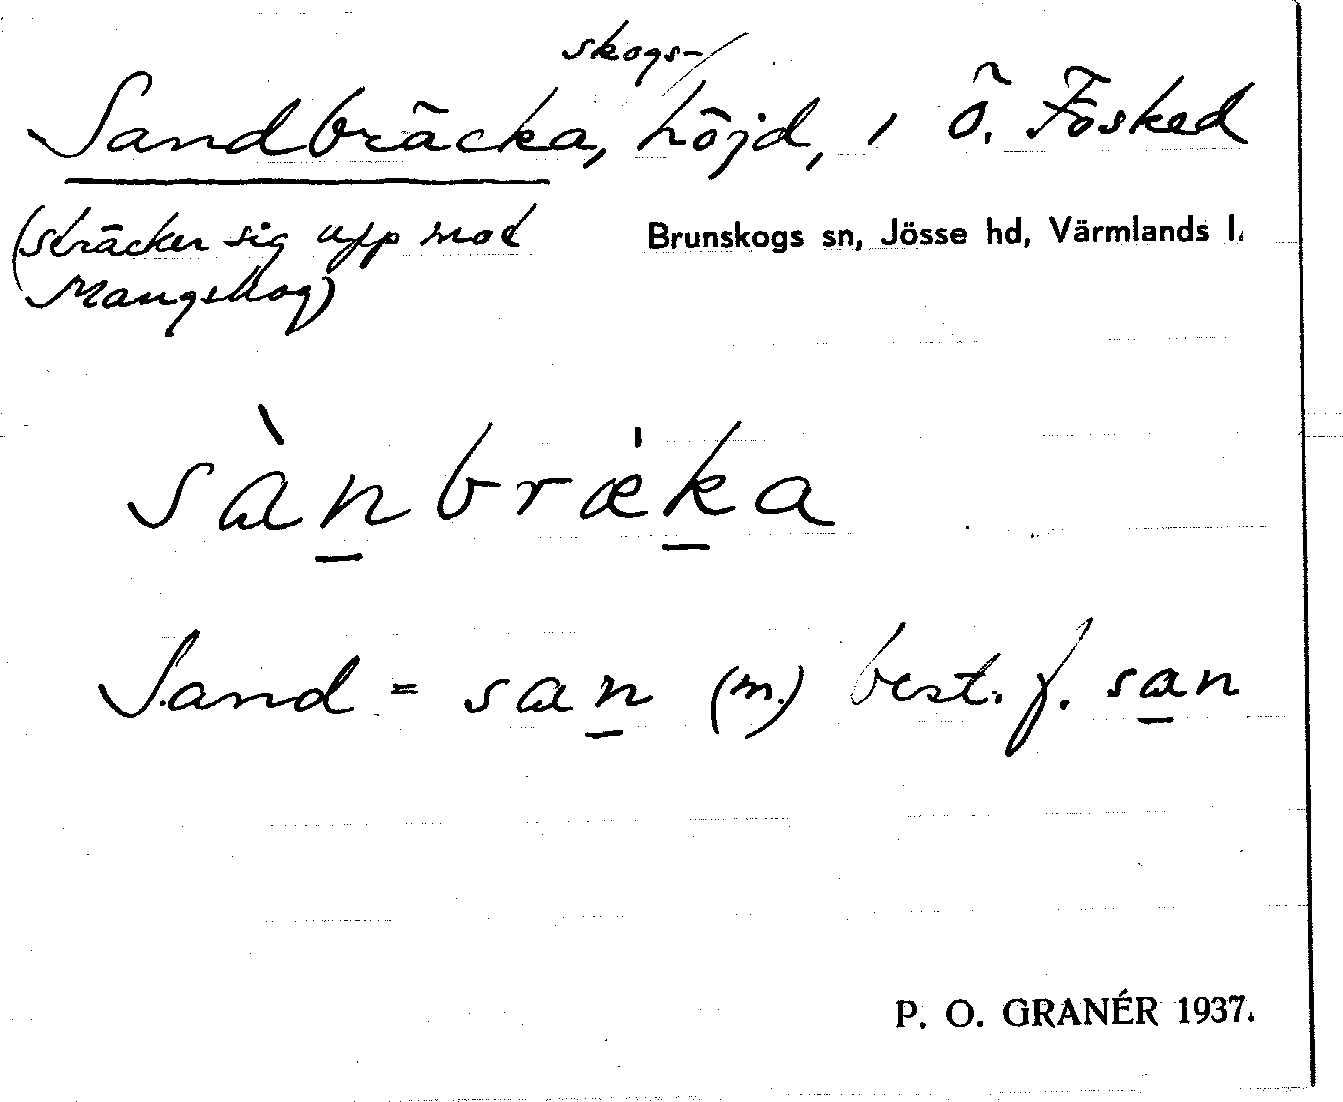 skogs-
Sandbräcka, höjd, i Ö. Fösked
(sträcker sig upp mot
Mangskog)
Brunskogs sn, Jösse hd, Värmlands l.
sànbræ̍ka
Sand = san (m.) best. f. san
P. O. GRANÉR 1937.